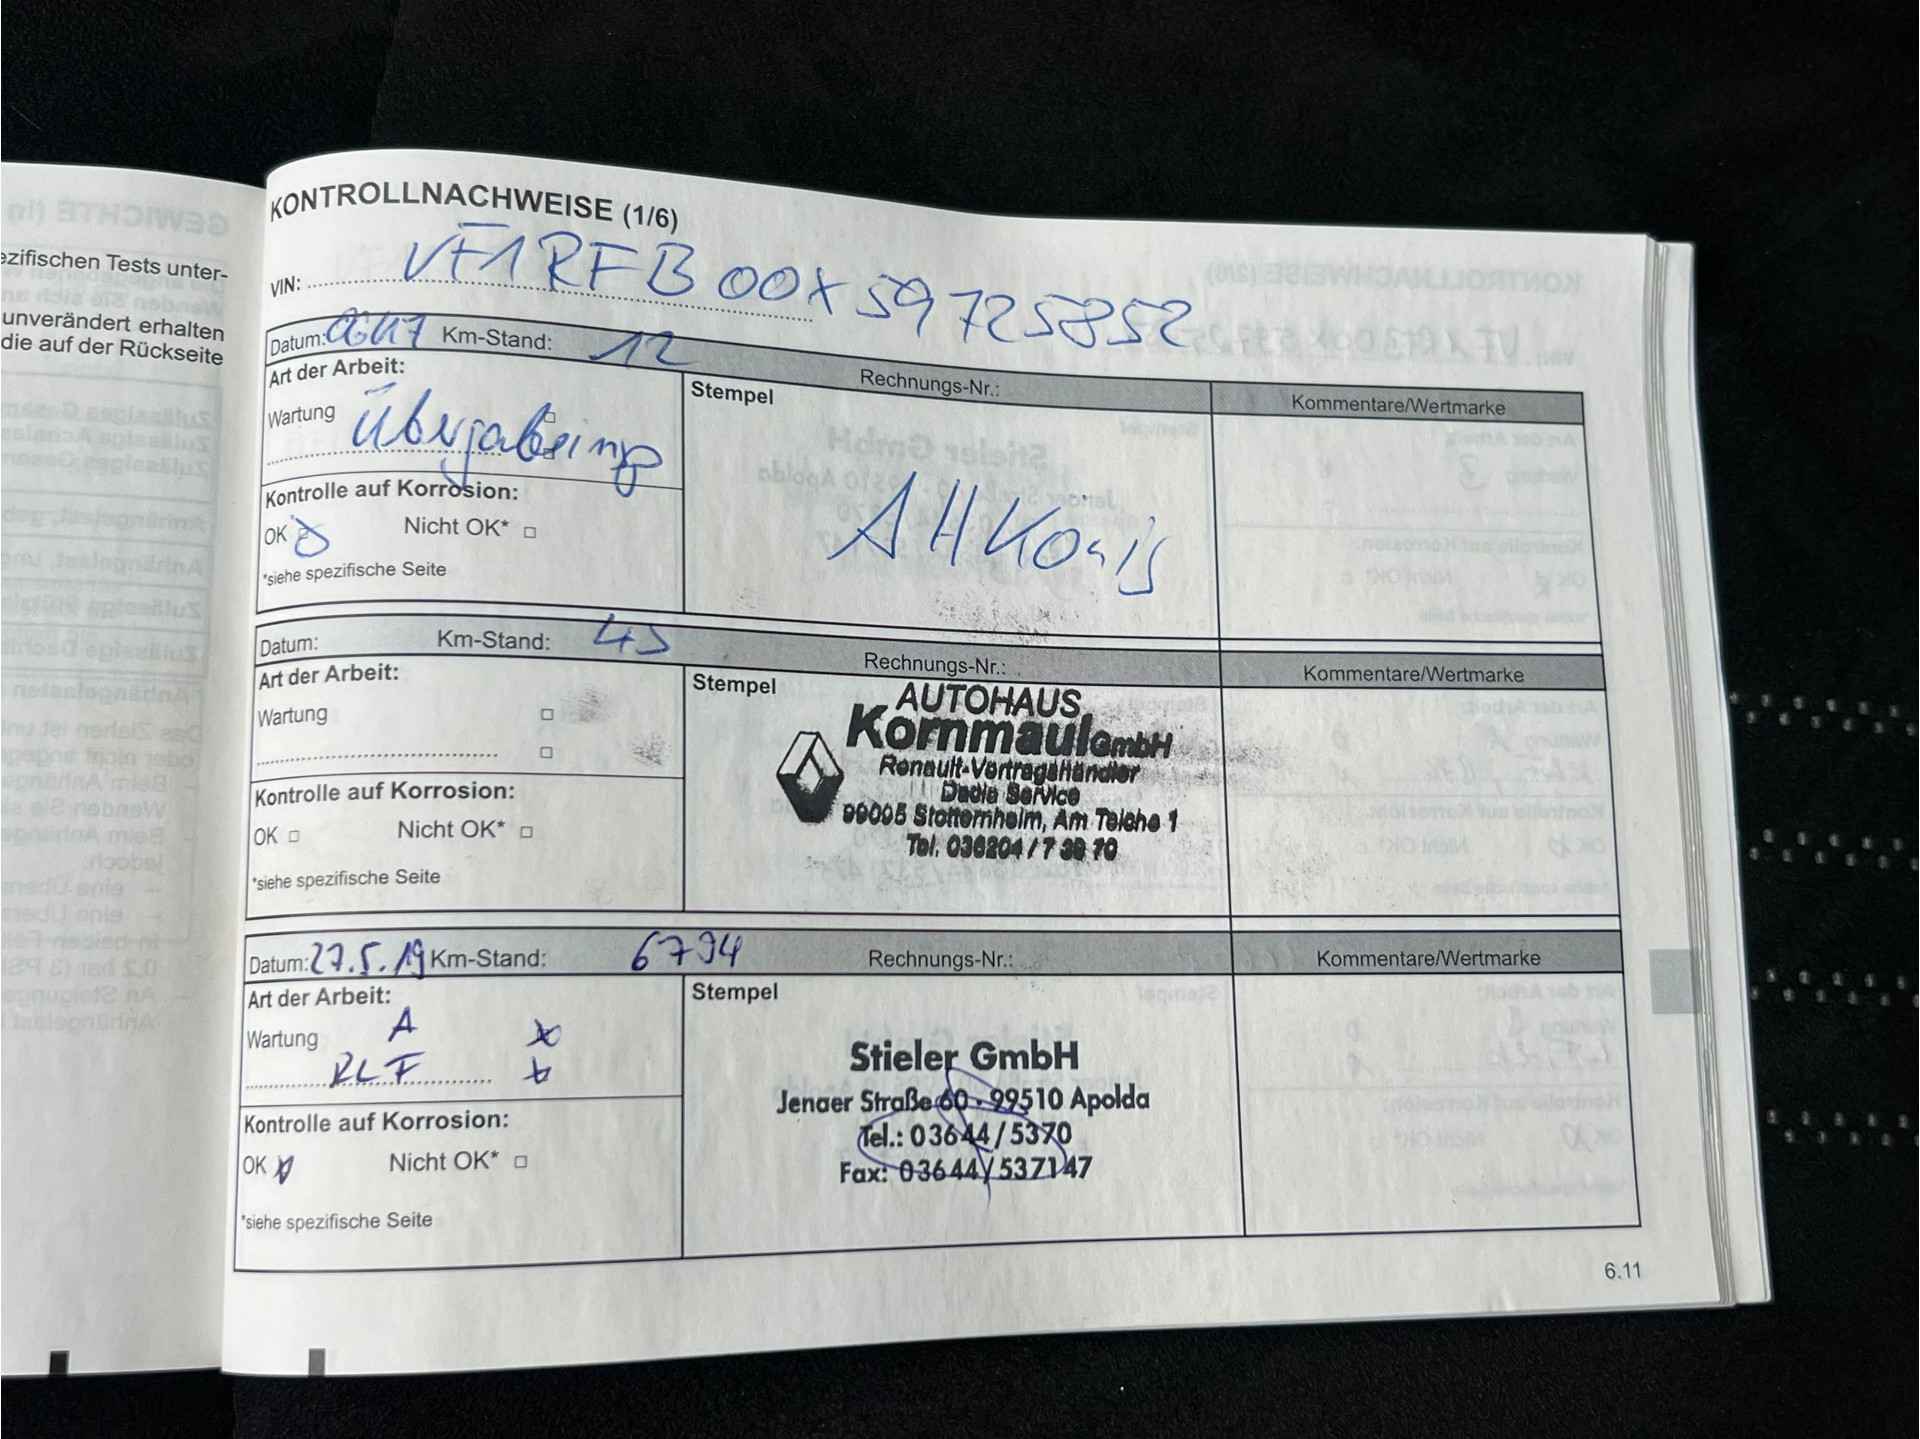 ezifischen Tests unter-
unverändert erhalten
die auf der Rückseite
KONTROLLNACHWEISE (1/6)
VIN: VF1RFB00X59725852
Datum: Km-Stand: 12
Rechnungs-Nr.:
Kommentare/Wertmarke
Art der Arbeit:
Stempel
Wartung Übergabeinsp
Kontrolle auf Korrosion:
OK Nicht OK* □
AH König
*siehe spezifische Seite
Datum: Km-Stand: 45
Rechnungs-Nr.:
Kommentare/Wertmarke
Art der Arbeit:
Stempel
Wartung □
□
Kontrolle auf Korrosion:
OK □ Nicht OK* □
*siehe spezifische Seite
AUTOHAUS
Kornmaul GmbH
Renault-Vertragshändler
Dacia Service
99095 Stotternheim, Am Teiche 1
Tel. 036204 / 7 38 70
Datum: 27.5.19 Km-Stand: 6794
Rechnungs-Nr.:
Kommentare/Wertmarke
Art der Arbeit:
Stempel
Wartung A x
RLF x
Kontrolle auf Korrosion:
OK x Nicht OK* □
*siehe spezifische Seite
Stieler GmbH
Jenaer Straße 60 · 99510 Apolda
Tel.: 03644/5370
Fax: 03644/537147
6.11